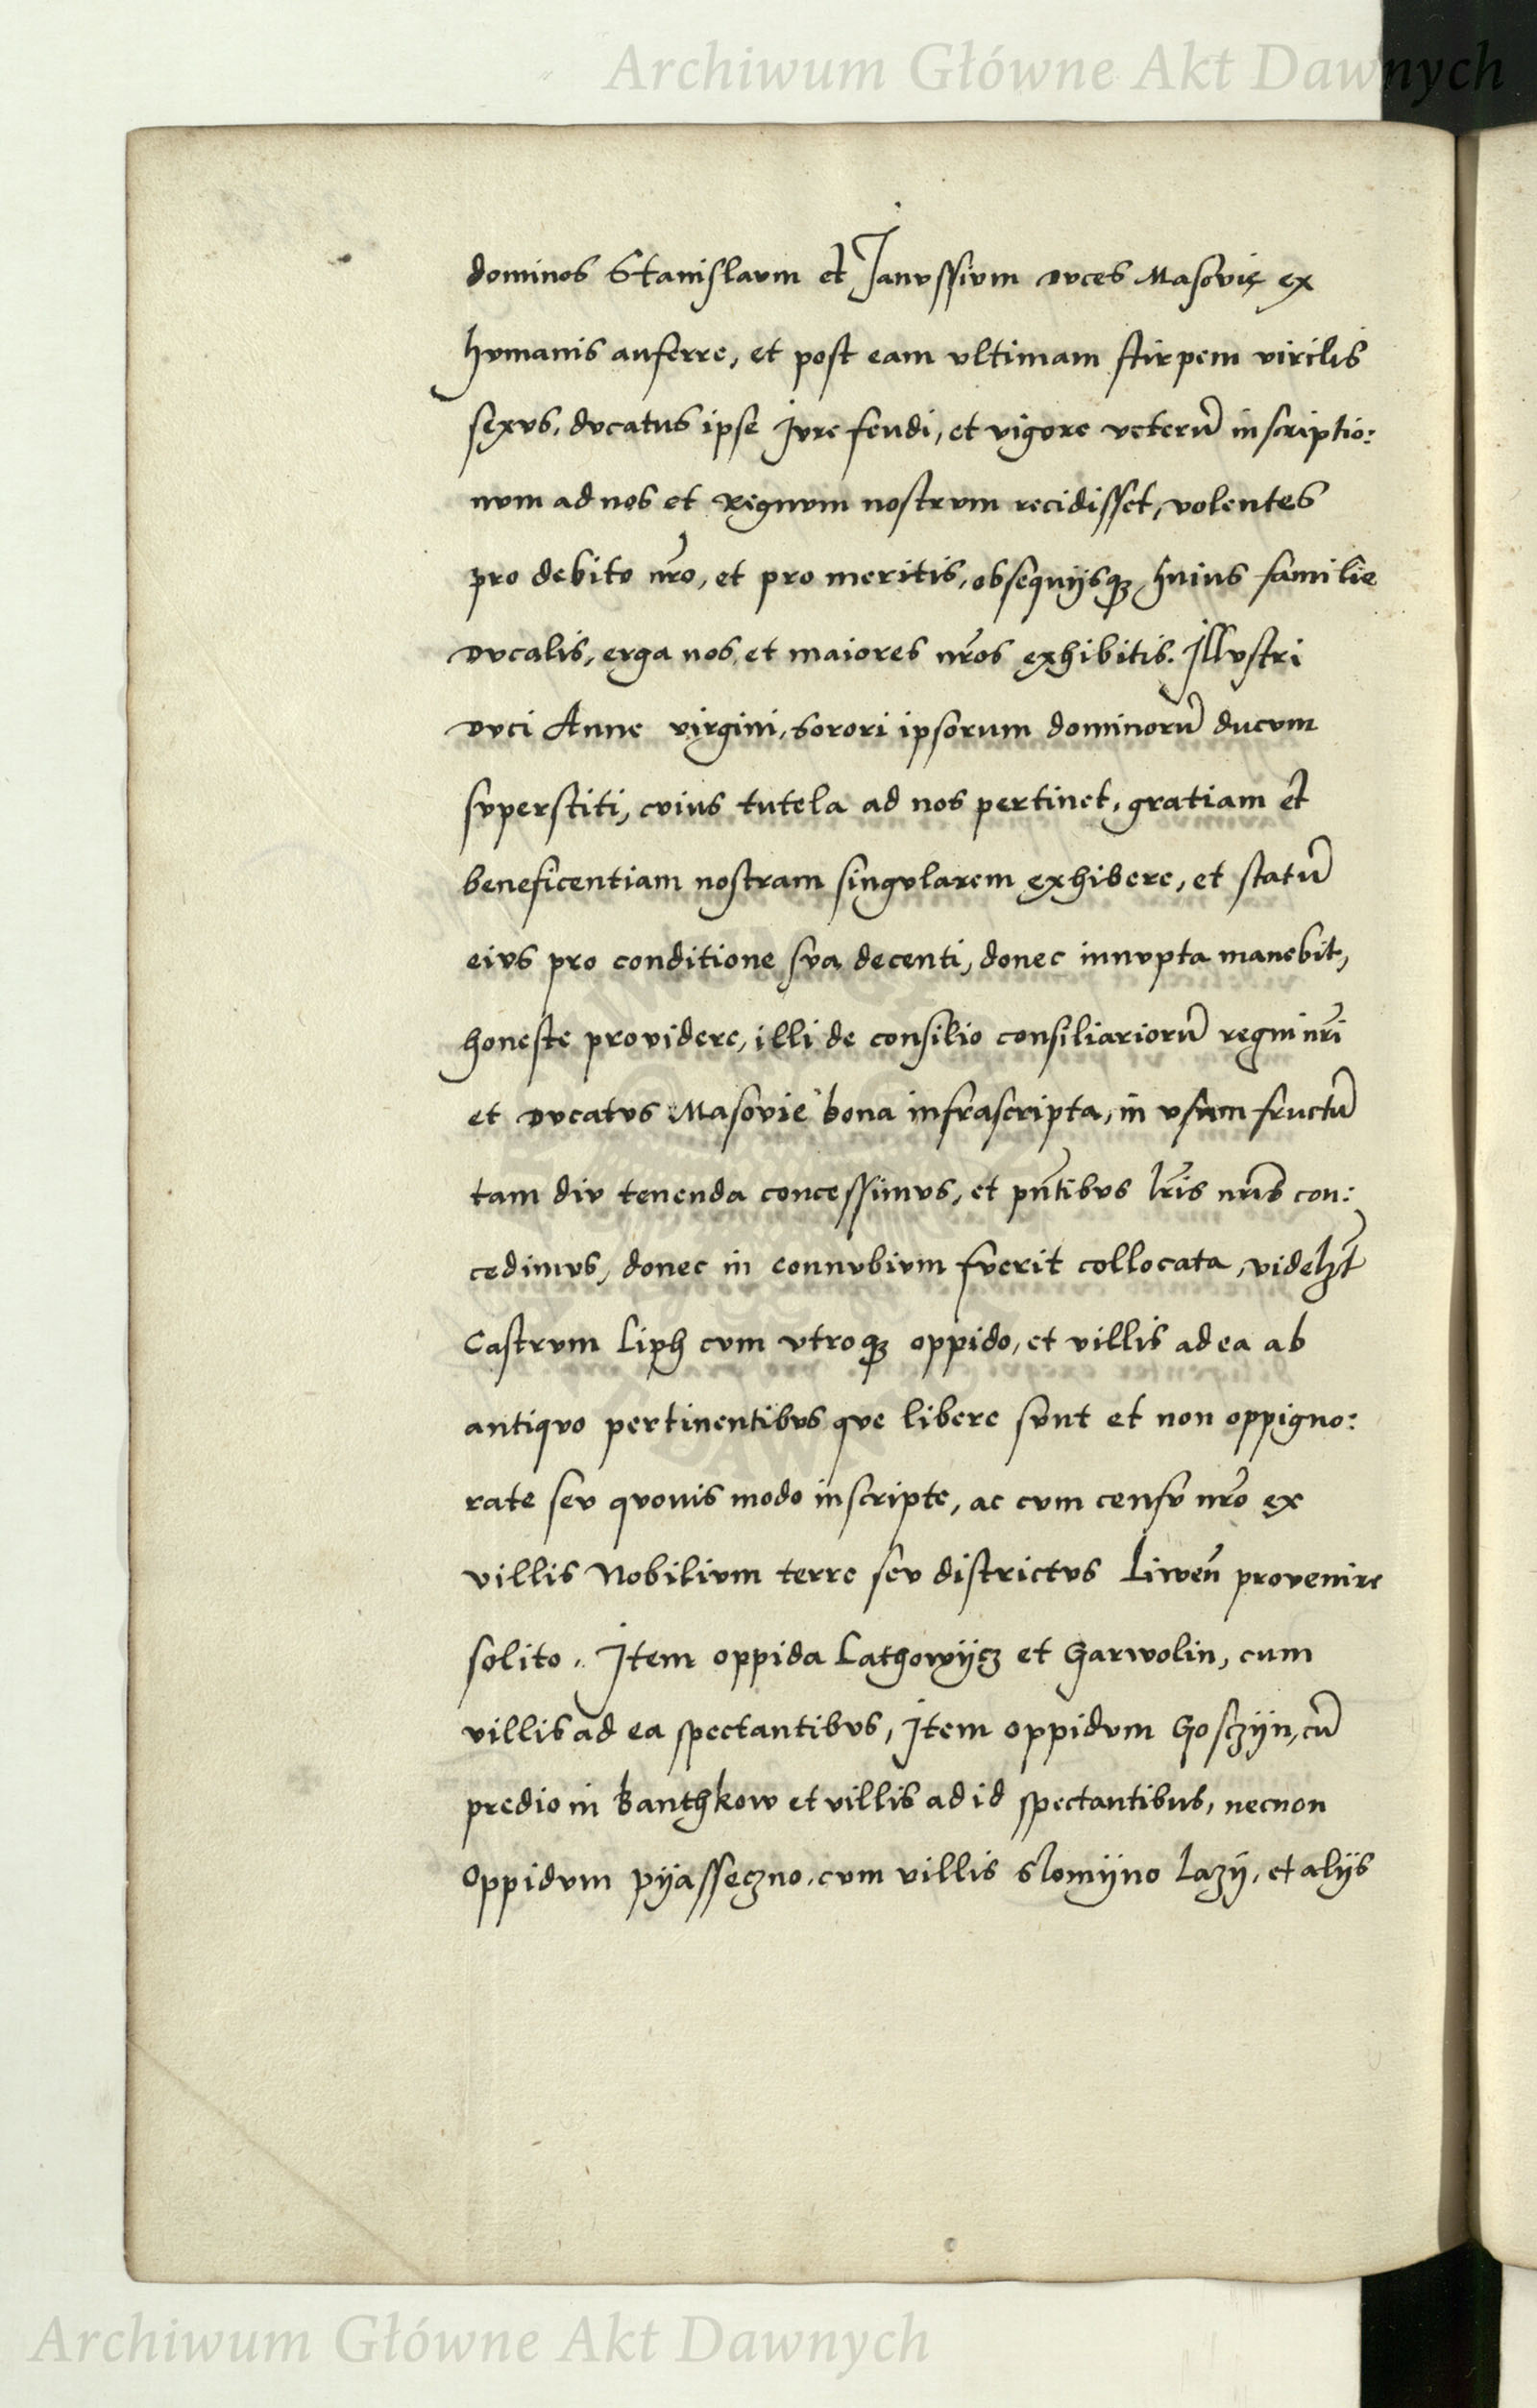 Archiwum Główne Akt Dawnych
dominos Stanislaum et Janussium duces Masovię ex
humanis auferre, et post eam ultimam stirpem virilis
sexus, ducatus ipse Jure feudi, et vigore veterũ inscriptio:
num ad nos et Regnum nostrum recidisset, volentes
pro debito nr̃o, et pro meritis, obsequijsqꝫ huius familie
ducalis, erga nos, et maiores nr̃os exhibitis. Illustri
duci Anne virgini, sorori ipsorum dominorũ ducum
superstiti, cuius tutela ad nos pertinet, gratiam et
beneficentiam nostram singularem exhibere, et statũ
eius pro conditione sua decenti, donec innupta manebit,
honeste providere, illi de consilio consiliariorũ regni nr̃i
et ducatus Masovie bona infrascripta, in usum fructũ
tam diu tenenda concessimus, et pñtibus lr̃is nr̃is con:
cedimus, donec in connubium fuerit collocata, videlꝫt
Castrum Liph cum utroqꝫ oppido, et villis ad ea ab
antiquo pertinentibus que libere sunt et non oppigno:
rate seu quovis modo inscripte, ac cum censu nr̃o ex
villis Nobilium terre seu districtus Liweñ provenire
solito. Item oppida Lathowijcz et Garwolin, cum
villis ad ea spectantibus, Item oppidum Gosczijn, cũ
predio in Banthkow et villis ad id spectantibus, necnon
Oppidum pijasseczno, cum villis Slomijno Lazij, et alijs
Archiwum Główne Akt Dawnych